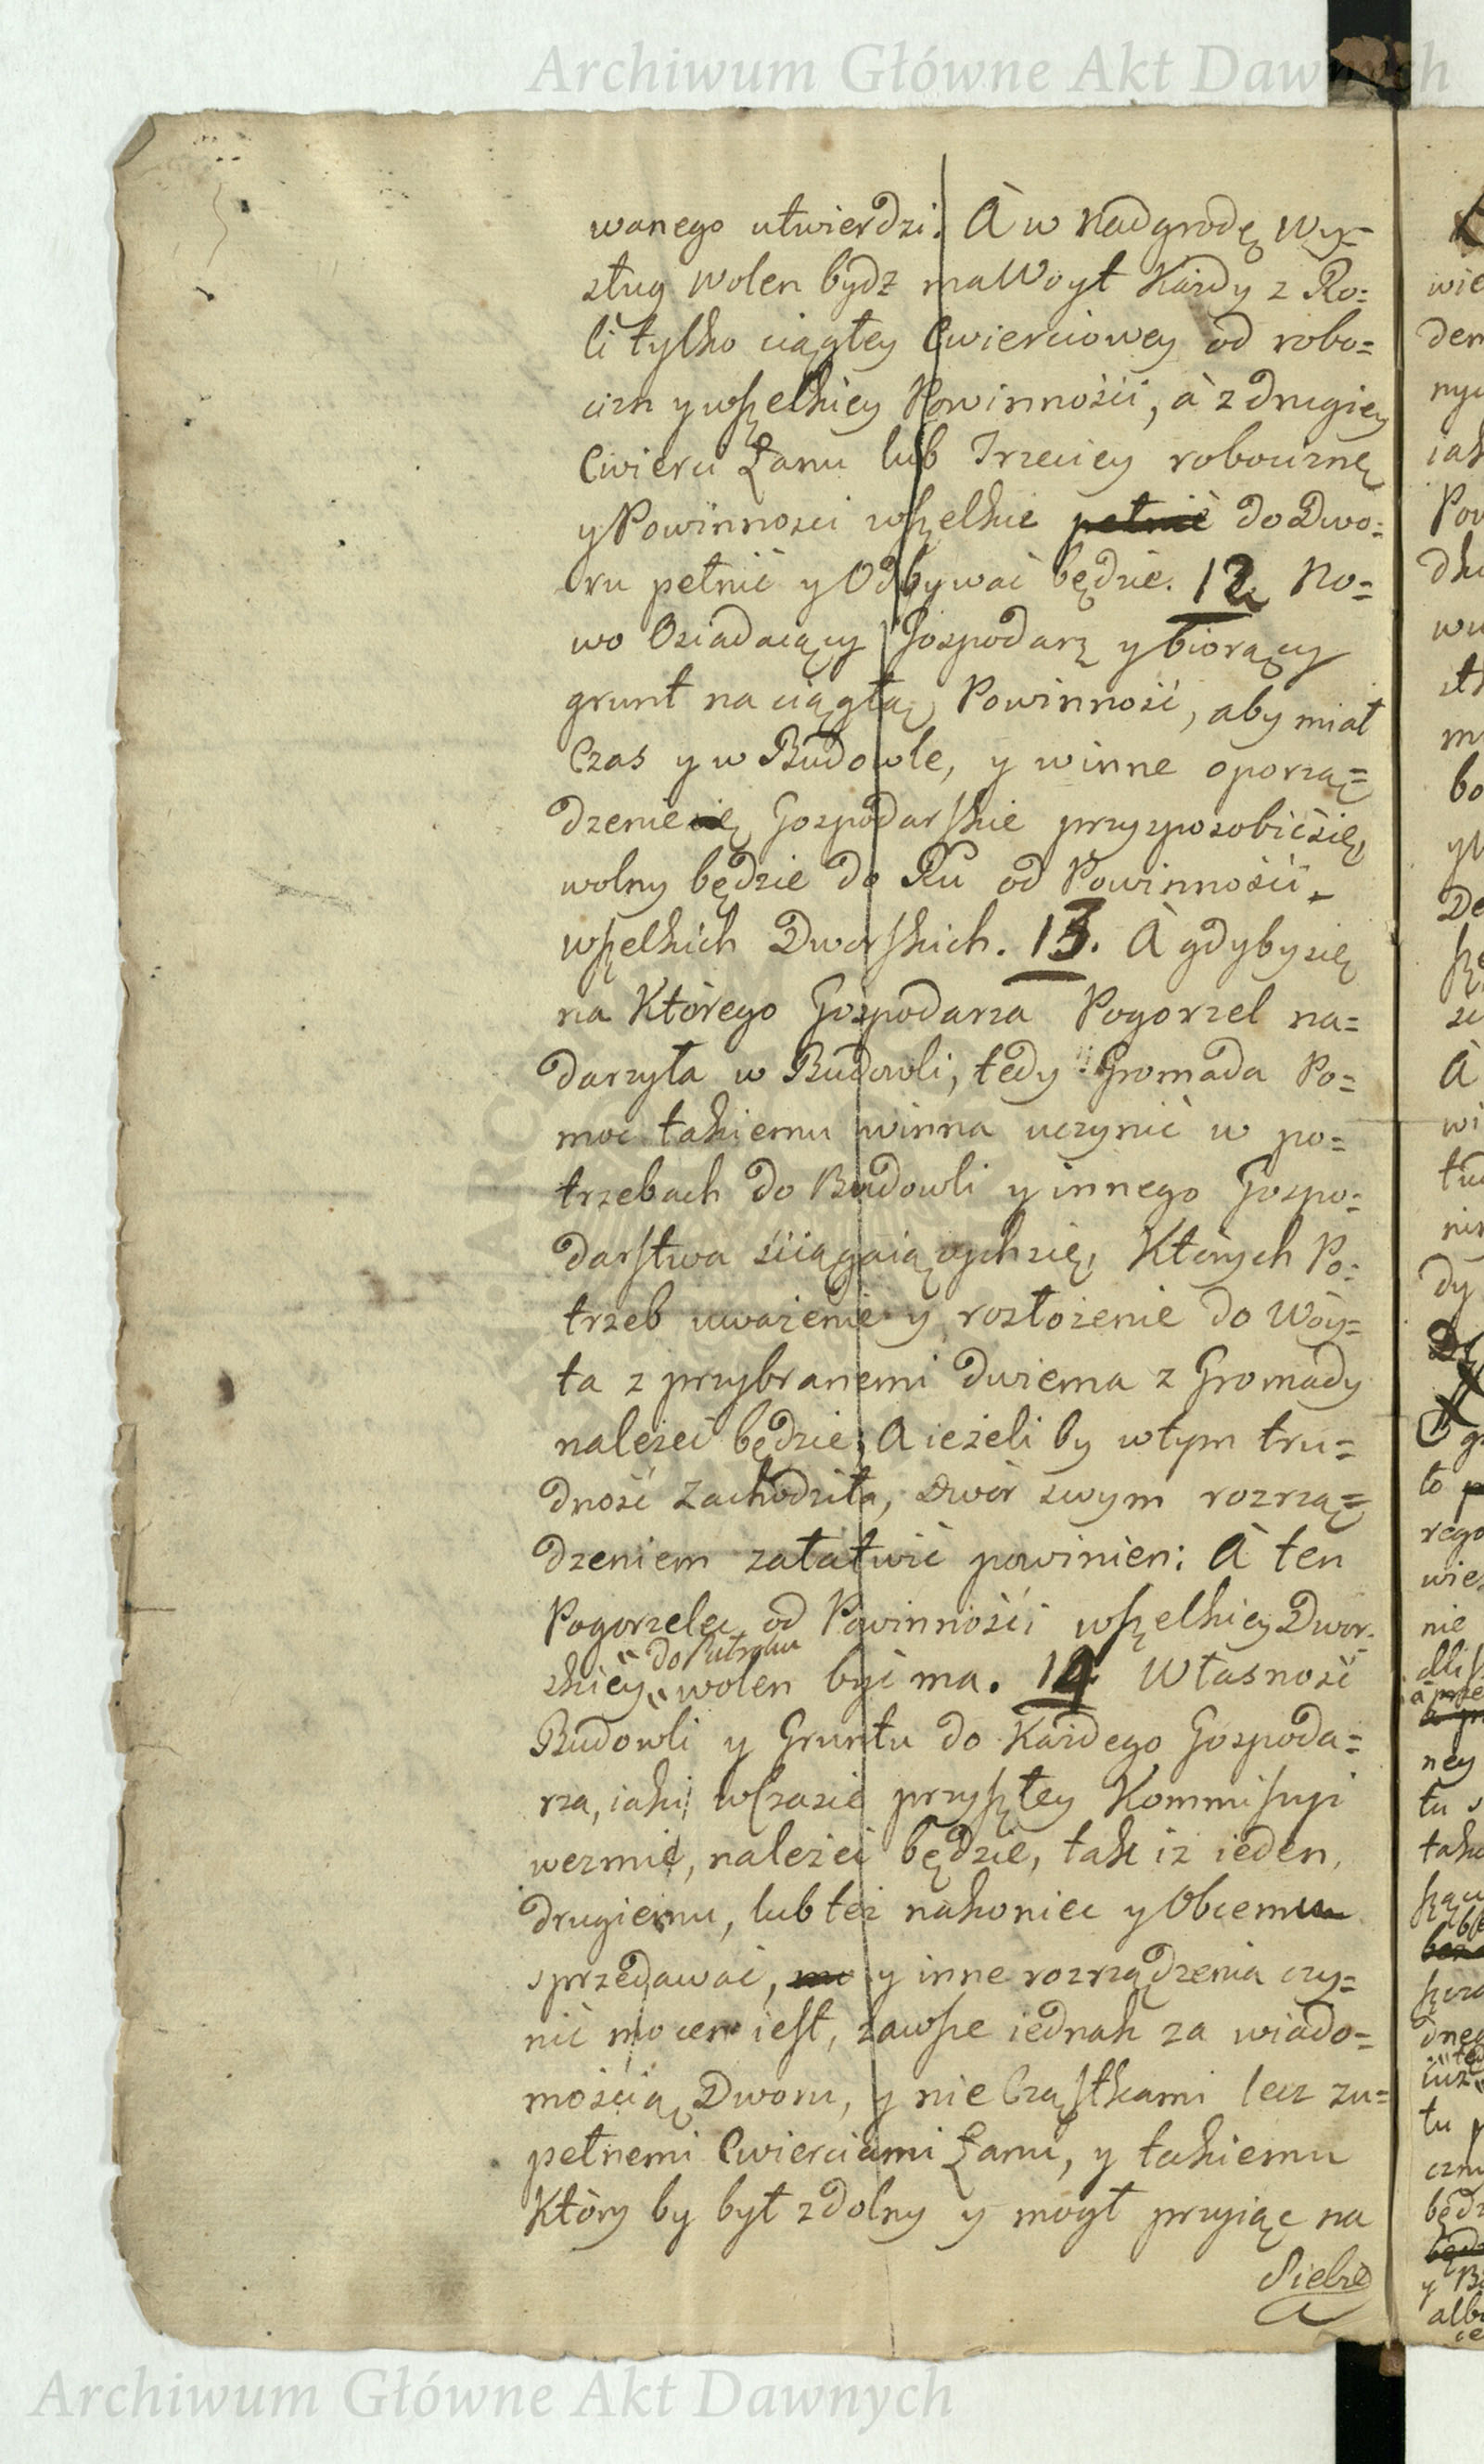 Archiwum Główne Akt Dawnych
wanego utwierdzi. A w Nadgrodę Wy=
sług wolen bydz ma Woyt Każdy z Ro=
li tylko ciągłey Cwierciowey od robo=
cizn y wszelkiey Powinności, à z drugiey
Cwierci Łanu lub Trzeciey robociznę
y Powinnosci wszelkie pełnić do Dwo=
ru pełnić y Odbywać będzie. 12. No=
wo Osiadaiący Gospodarz y biorący
grunt na ciągłą Powinność, aby miał
Czas y w Budowle, y w inne oporzą=
dzenie się Gospodarskie przysposobić się,
wolny będzie do Ru od Powinności
wszelkich Dworskich. 13. A gdyby się
na Którego Gospodarza Pogorzel na=
darzyła w Budowli, tedy Gromada Po=
moc takiemu winna uczynić w po=
trzebach do Budowli y innego Gospo=
darstwa ściągaiących się, Których Po=
trzeb uważenie y rozłożenie do Wóy=
ta z przybranemi dwiema z Gromady
należeć będzie; A ieżeli by w tym tru=
dność Zachodziła, Dwór swym rozrzą=
dzeniem załatwić powinien: A ten
Pogorzelec od Powinności wszelkiey Dwor=
do Pułroku
skiey wolen być ma. 14 Własność
Budowli y Gruntu do Każdego Gospoda=
rza, iaki w Czasie przyszłey Kommissyi
wezmie, należeć będzie, tak iż ieden,
drugiemu, lub też nakoniec y Obcemu
sprzedawać, mo y inne rozrządzenia czy=
nić mocen iest, zawsze iednak za wiado=
mością Dworu, y nie Cząstkami lecz zu=
pełnemi Cwierciami Łanu, y takiemu
Który by był zdolny y mogł przyiąc na
Siebie
Archiwum Główne Akt Dawnych